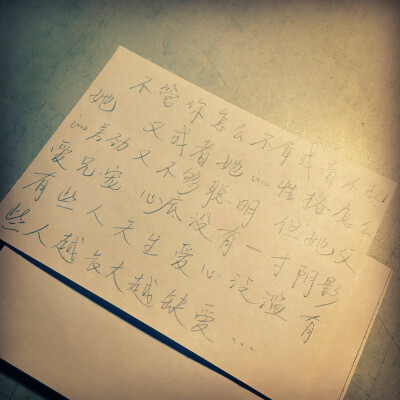 不管你怎么不或看不起
她 又或者她的性格怎么
的差劲又不够聪明 但她父
爱兄宠 心底没有一寸阴影
有些人天生爱心泛滥 有
些人越长大越缺爱...